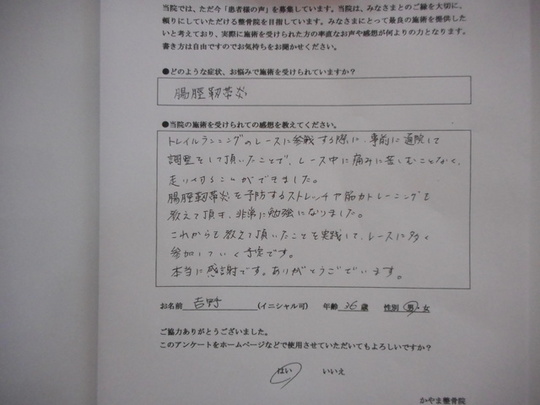 当院では、ただ今「患者様の声」を募集しています。当院は、みなさまとのご縁を大切に、
頼りにしていただける整骨院を目指しています。みなさまにとって最良の施術を提供した
いと考えており、実際に施術を受けられた方の率直なお声や感想が何よりの力となります。
書き方は自由ですのでお気持ちをお聞かせください。
●どのような症状、お悩みで施術を受けられていますか?
腸脛靭帯炎
●当院の施術を受けられての感想を教えてください。
トレイルランニングのレースに参戦する際に、事前に通院して
調整をして頂いたことで、レース中に痛みに苦しむことなく、
走り切ることができました。
腸脛靭帯炎を予防するストレッチや筋力トレーニングも
教えて頂き、非常に勉強になりました。
これからも教えて頂いたことを実践して、レースに多く
参加していく予定です。
本当に感謝です。ありがとうございます。
お名前 吉野 (イニシャル可) 年齢 26 歳 性別 男・女
ご協力ありがとうございました。
このアンケートをホームページなどで使用させていただいてもよろしいですか?
はい いいえ
かやま整骨院